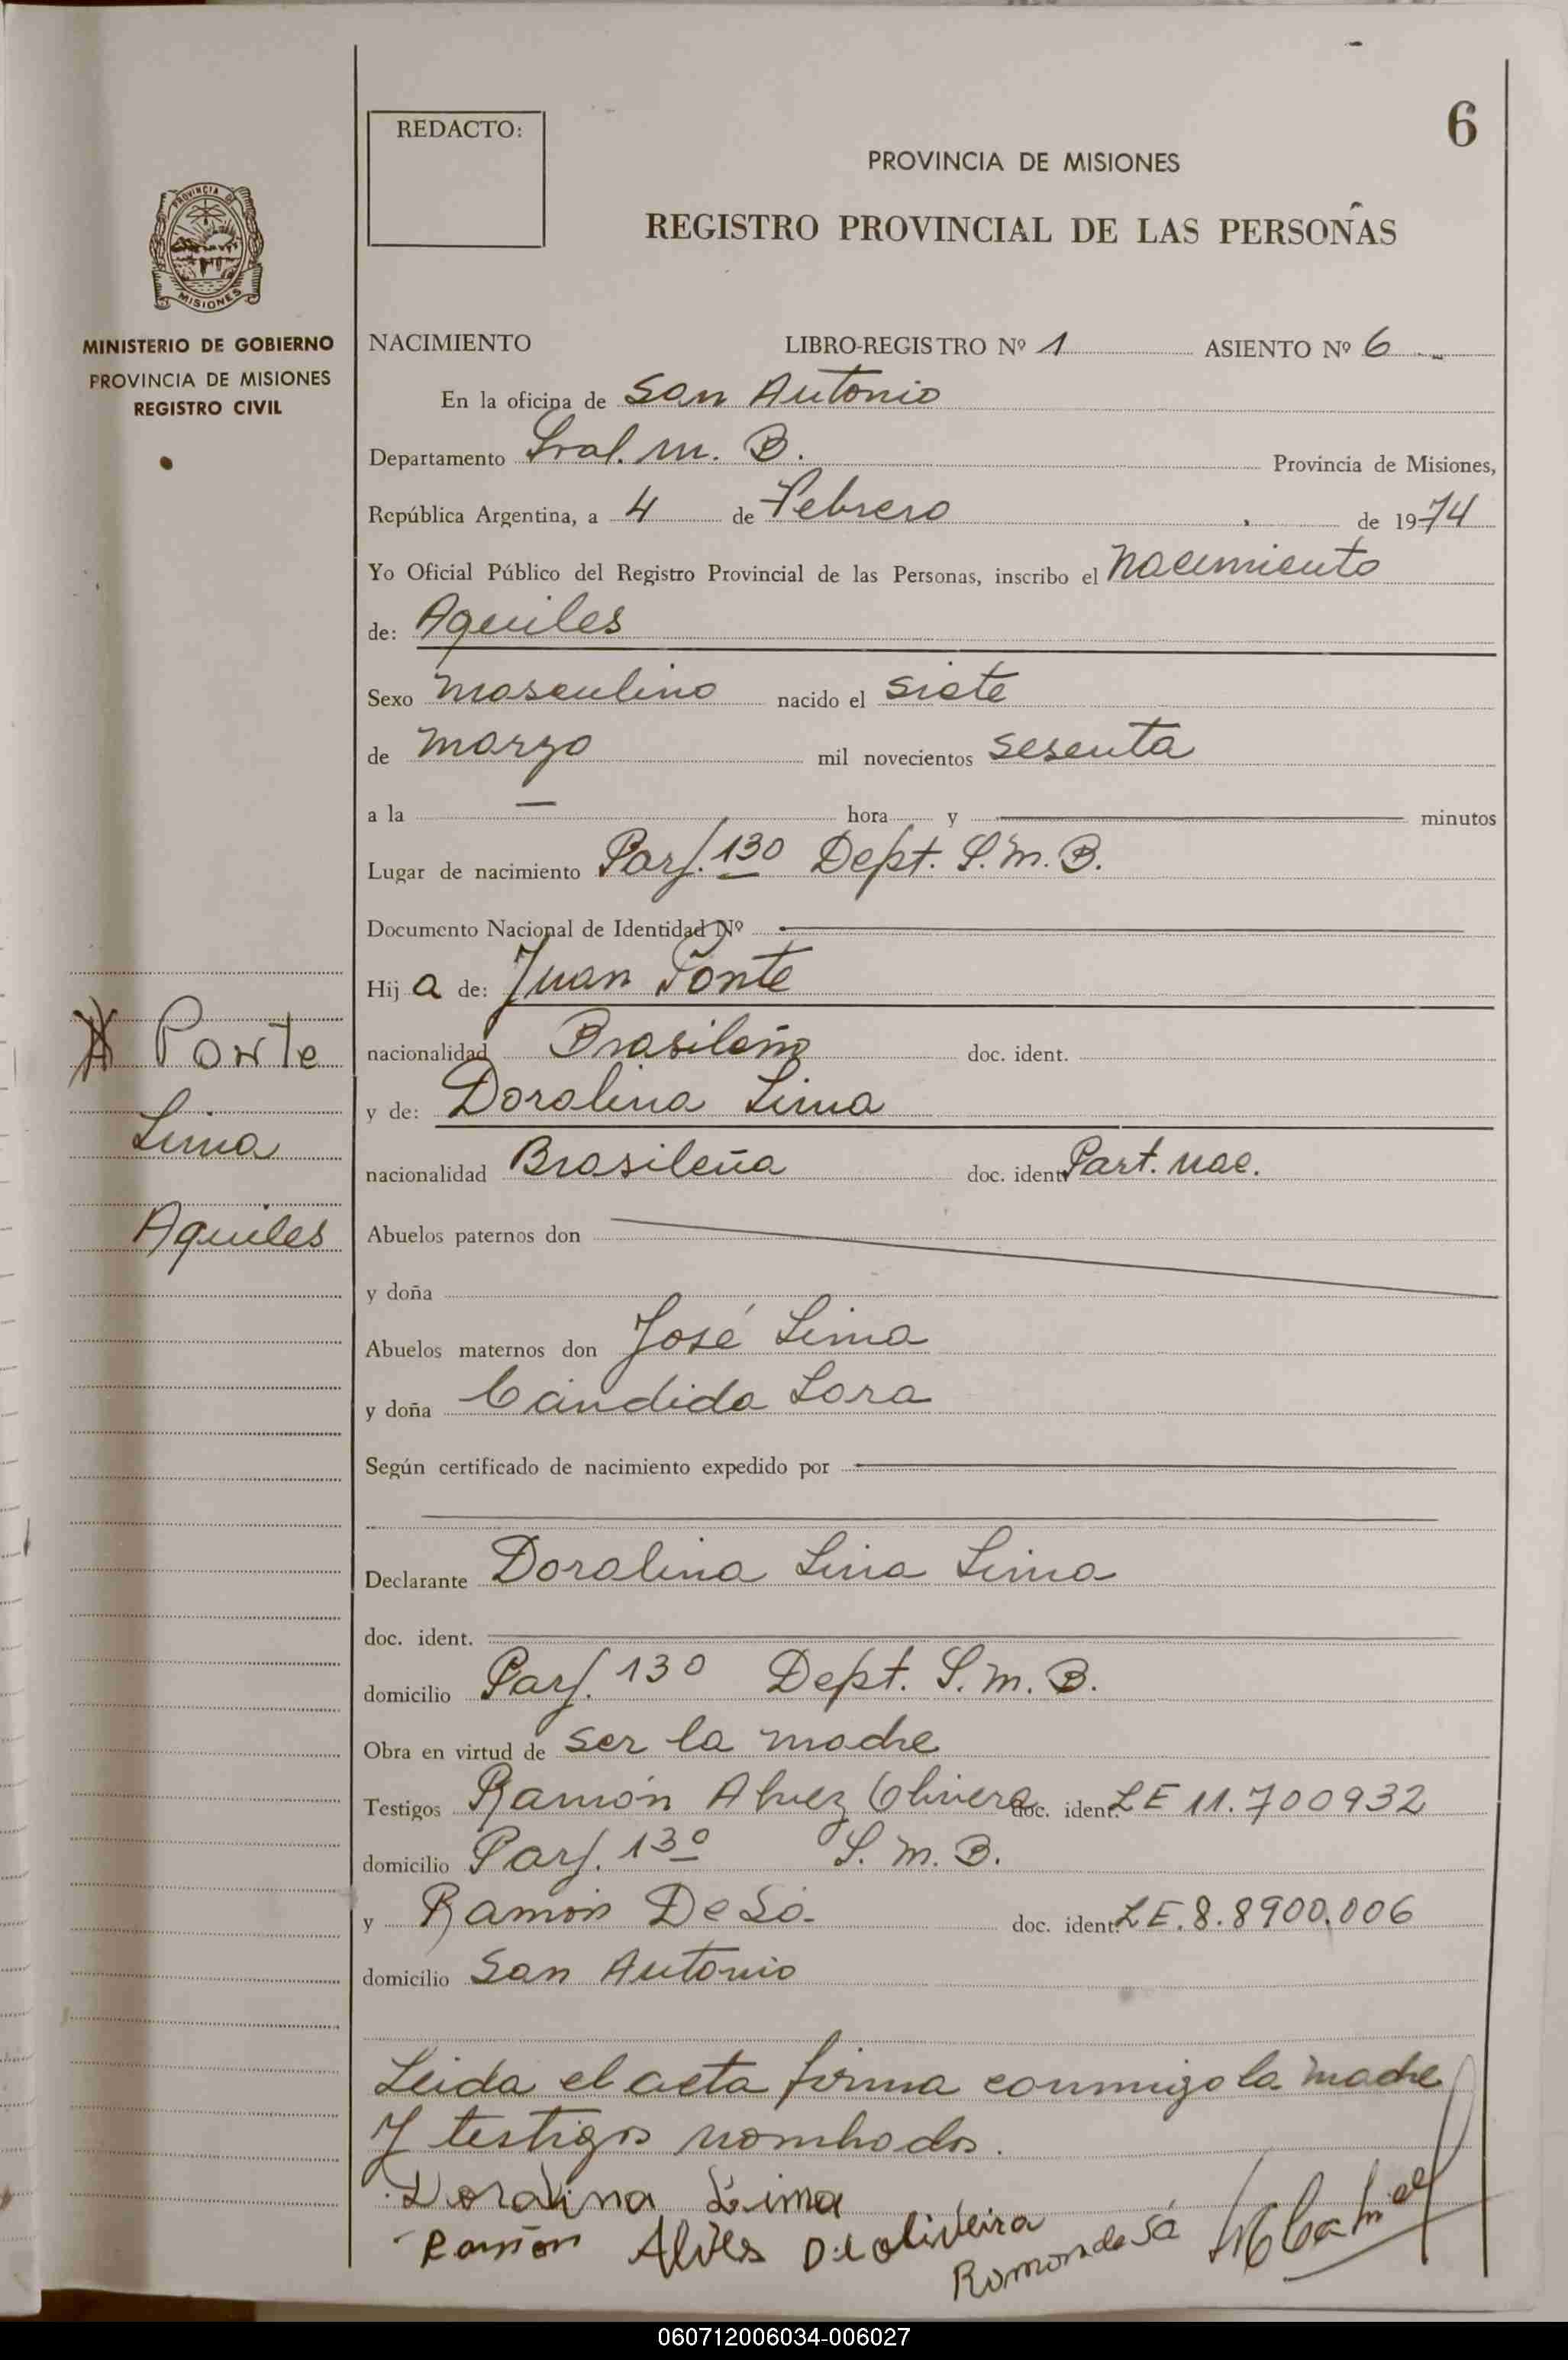 6
REDACTO:
PROVINCIA DE MISIONES
REGISTRO PROVINCIAL DE LAS PERSONAS
PROVINCIA DE
MISIONES
MINISTERIO DE GOBIERNO
PROVINCIA DE MISIONES
REGISTRO CIVIL
NACIMIENTO LIBRO-REGISTRO Nº 1 ASIENTO Nº 6
En la oficina de San Antonio
Departamento Gral. M. B. Provincia de Misiones,
República Argentina, a 4 de Febrero de 1974
Yo Oficial Público del Registro Provincial de las Personas, inscribo el Nacimiento
de: Aquiles
Sexo Masculino nacido el siete
de Marzo mil novecientos sesenta
a la — hora y minutos
Lugar de nacimiento Parj. 130 Dept. G. M. B.
Documento Nacional de Identidad Nº
Hij a de: Juan Ponte
nacionalidad Brasileño doc. ident.
y de: Doralina Lima
nacionalidad Brasileña doc. ident. Part. nac.
Ponte
Lima
Aquiles
Abuelos paternos don
y doña
Abuelos maternos don José Lima
y doña Cándida Lara
Según certificado de nacimiento expedido por
Declarante Doralina Lima
doc. ident.
domicilio Parj. 130 Dept. G. M. B.
Obra en virtud de ser la madre
Testigos Ramón Alvez Olivera doc. ident. LE 11.700932
domicilio Parj. 130 G. M. B.
y Ramón De Sá- doc. ident. LE. 8.8900.006
domicilio San Antonio
Leida el acta firma conmigo la madre
y testigos nombados.
Doralina Lima
Ramón Alves De oliveira
Ramon de Sá
060712006034-006027